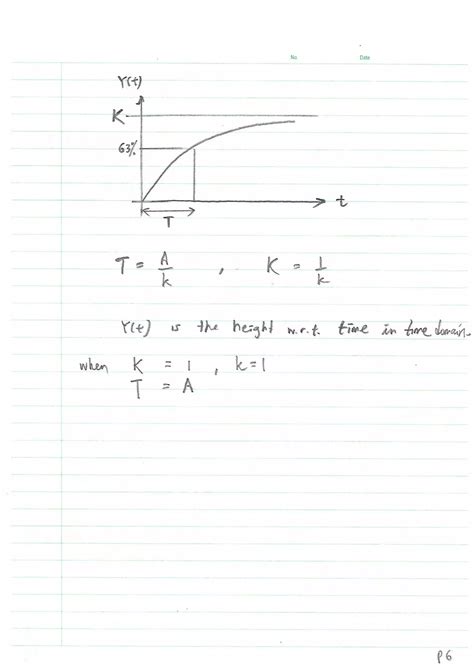 No
Date
Y(t)
K
63%
t
T
T = A/k , K = 1/k
Y(t) is the height w.r.t. time in time domain.
when K = 1 , k=1
T = A
P6